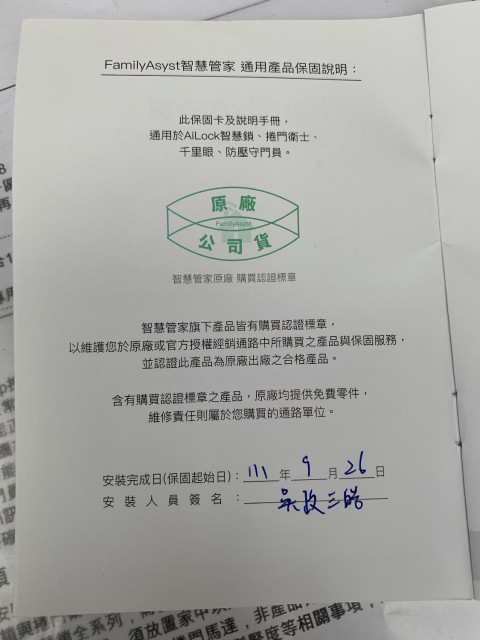 FamilyAsyst智慧管家 通用產品保固說明：
此保固卡及說明手冊，
通用於AiLock智慧鎖、捲門衛士、
千里眼、防壓守門員。
原廠
FamilyAsyst
公司貨
智慧管家原廠 購買認證標章
智慧管家旗下產品皆有購買認證標章，
以維護您於原廠或官方授權經銷通路中所購買之產品與保固服務，
並認證此產品為原廠出廠之合格產品。
含有購買認證標章之產品，原廠均提供免費零件，
維修責任則屬於您購買的通路單位。
安裝完成日(保固起始日)：111年9月26日
安裝人員簽名：吳